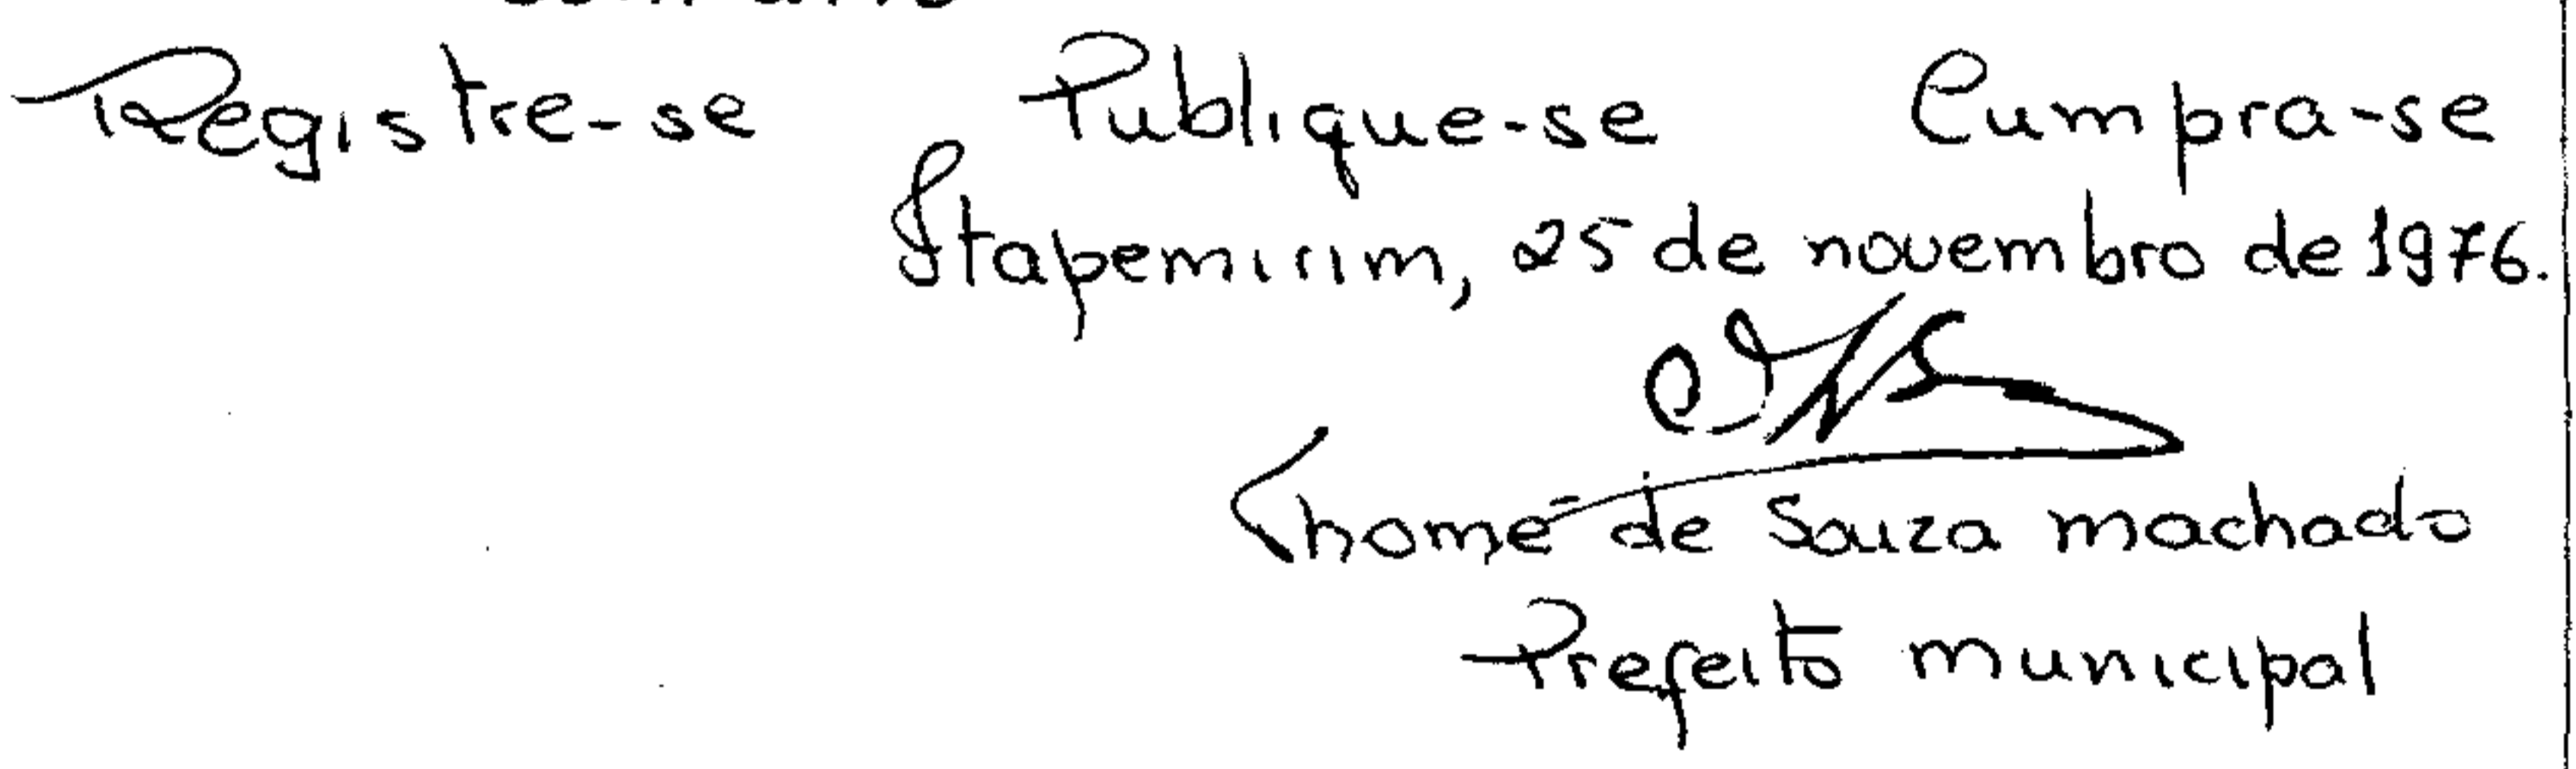 Registre-se Publique-se Cumpra-se
Itapemirim, 25 de novembro de 1976.
Thomé de Souza machado
Prefeito municipal